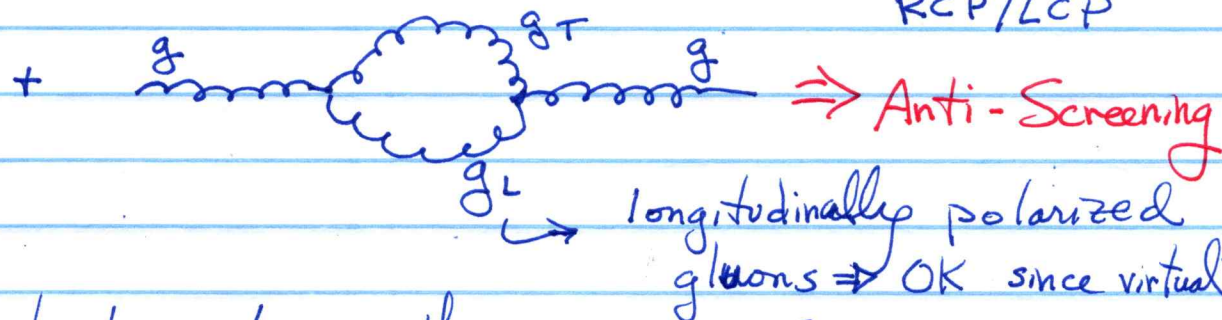 RCP/LCP
+ g g_T g ⇒ Anti-Screening
g_L
↳ longitudinally polarized
gluons ⇒ OK since virtual